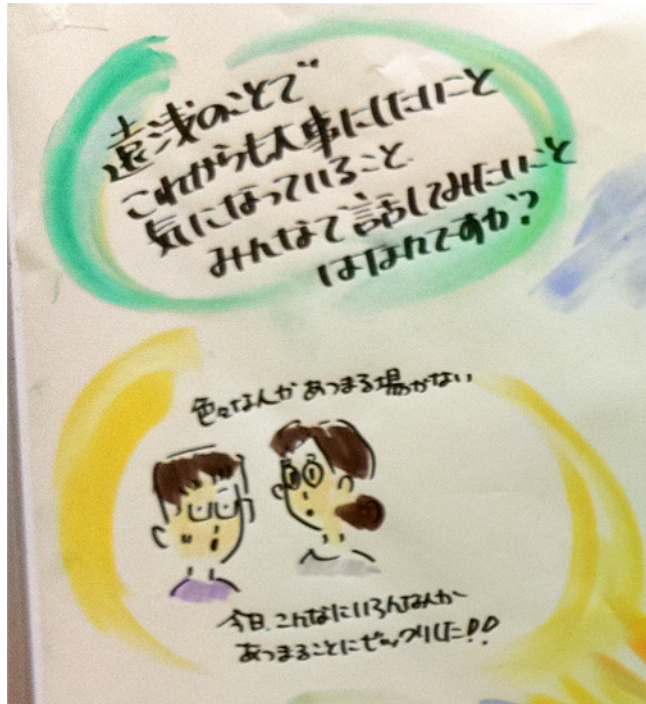 遠浅のことで
これからも大事にしたいこと
気になっていること
みんなで話してみたいこと
はなんですか？
色々な人が あつまる場がない
今日、こんなにいろんな人が
あつまることにビックリした!!